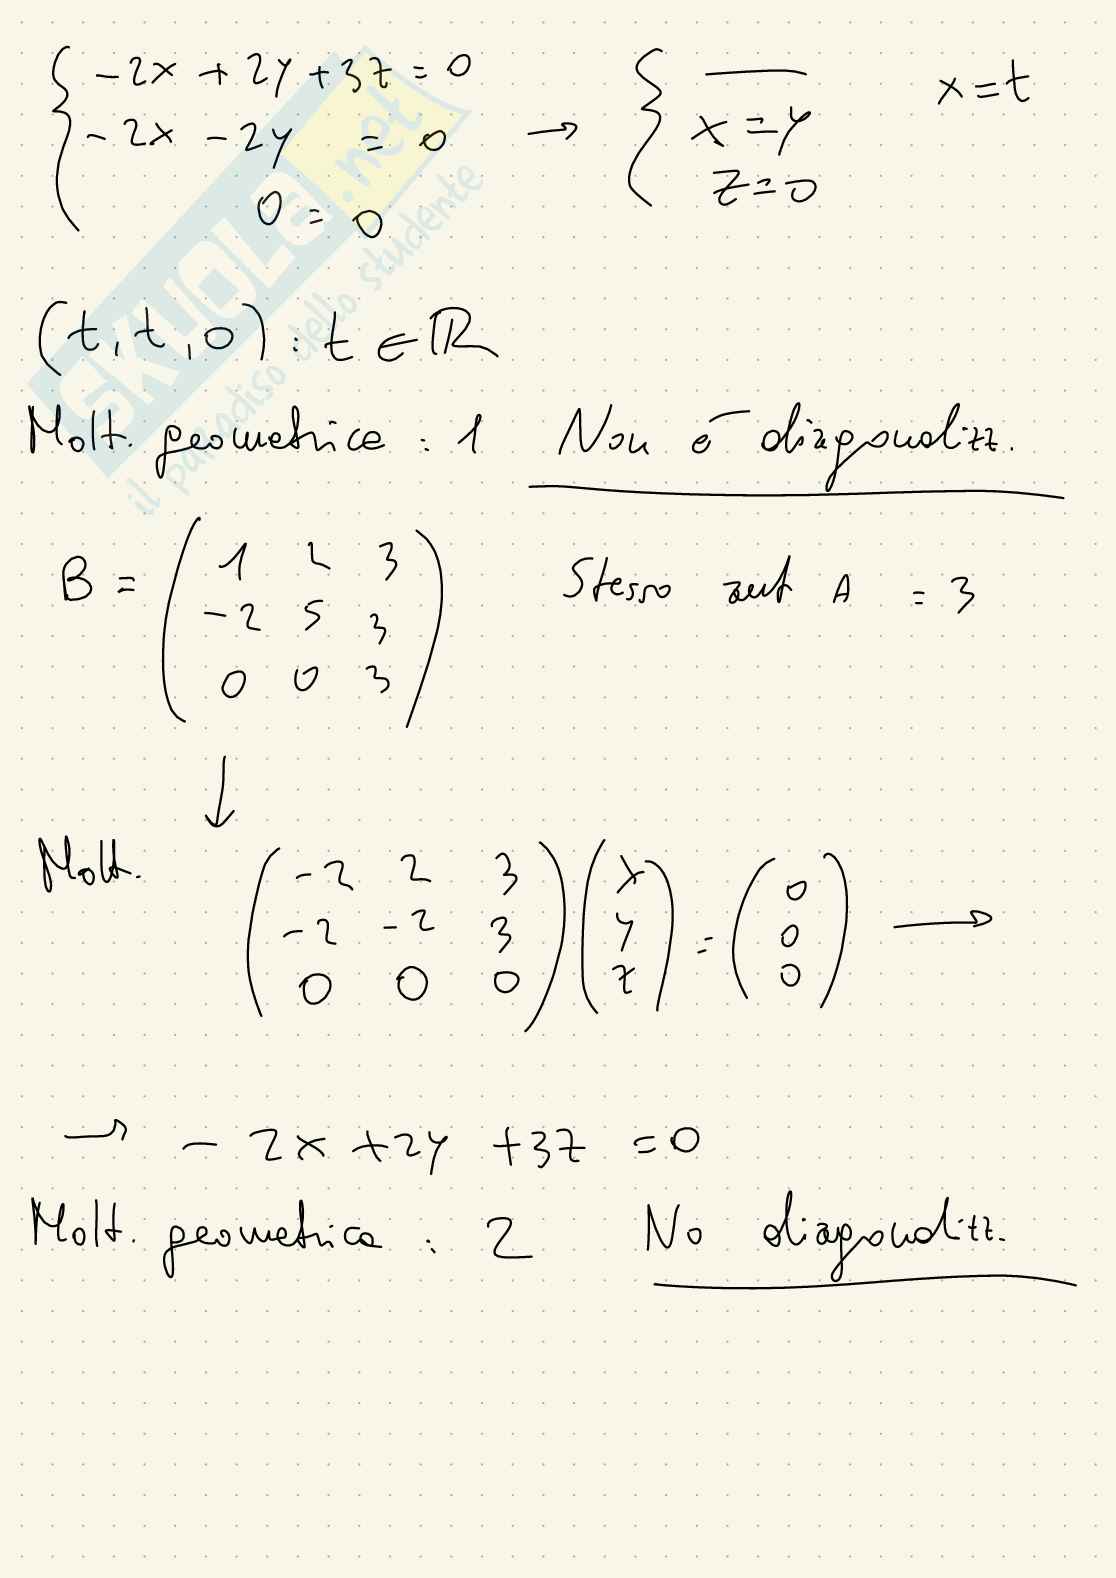 { -2x + 2y + 3z = 0
-2x - 2y = 0 → { x = y x = t
0 = 0 z = 0
(t, t, 0) : t ∈ ℝ
Molt. geometrica : 1 Non è diagonalizz.
B = ( 1 2 3 Stesso aut A = 3
-2 5 3
0 0 3 )
↓
Molt. ( -2 2 3 ) ( x ) = ( 0 ) →
( -2 -2 3 ) ( y ) ( 0 )
( 0 0 0 ) ( z ) ( 0 )
→ - 2x + 2y + 3z = 0
Molt. geometrica : 2 No diagonalizz.
SKUOLA.net
il paradiso dello studente